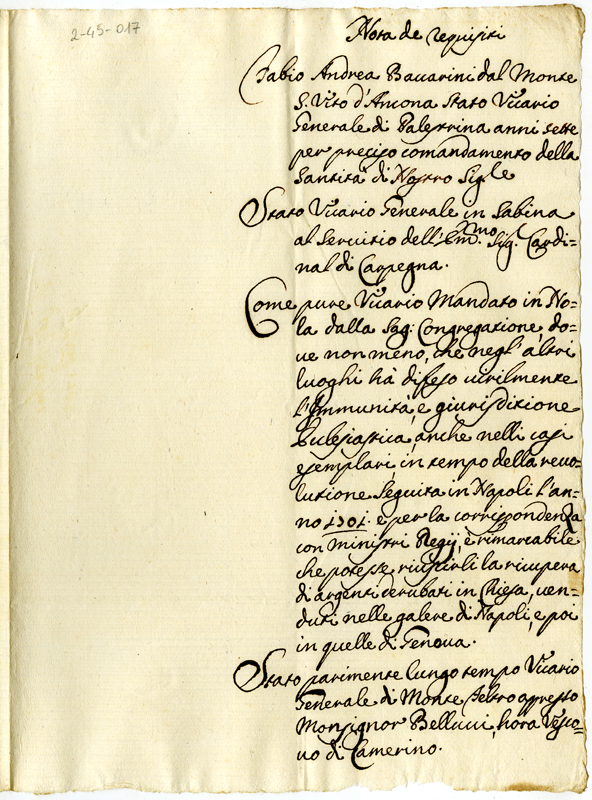 2-45-017
Nota de requisiti
Fabio Andrea Baccarini dal Monte
S. Vito d'Ancona stato Vicario
Generale di Palestrina anni sette
per preciso comandamento della
Santità di Nostro Sig.le
Stato Vicario Generale in Sabina
al servitio dell' Em.mo Sig.r Cardi=
nal di Carpegna.
Come pure Vicario Mandato in No=
la dalla Sag: Congregatione, do=
ue non meno, che negl' altri
luoghi hà difeso uirilmente
l'Immunità, e giurisditione
Eclesiastica, anche nelli casi
esemplari, in tempo della reuo=
lutione seguita in Napoli l'an=
no 1701. e per la corrispondenza
con Ministri Regij, è rimarcabile
che potesse riuscirli la ricupera
di argenti derubati in Chiesa, uen=
duti nelle galere di Napoli, e poi
in quelle di Genoua.
Stato parimente lungo tempo Vicario
Generale di Monte Feltro appresso
Monsignor Bellucci, hora Vesco=
uo di Camerino.